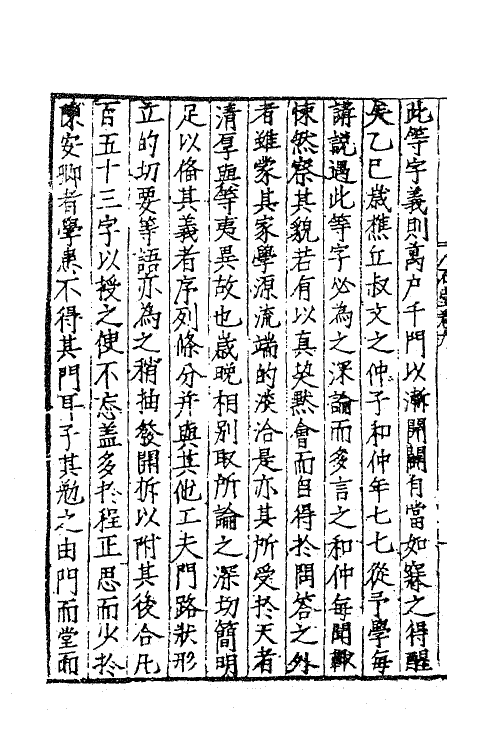 此等字義則萬戶千門以漸開闢有當如寐之得醒
矣乙巳歲樵丘叔文之仲子和仲年七七從予學每
講說遇此等字必為之深論而多言之和仲每聞輙
悚然察其貌若有以真契黙會而自得於問答之外
者雖蒙其家學源流端的浹洽是亦其所受於天者
清厚與等夷異故也歲晚相別取所論之深切簡明
足以俻其義者序列條分并與其他工夫門路狀形
立的切要等語亦為之稍抽發開拆以附其後合凢
百五十三字以授之使不忘盖多於程正思而少於
陳安卿者學患不得其門耳子其勉之由門而堂而